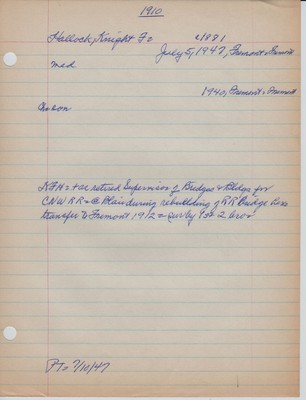 1910
Hallock, Knight F. c1881
July 5, 1947, Fremont-Fremont
Med
1940, Fremont-Fremont
Colon
KFH: + a retired Supervisor of Bridges & Bldgs for
CNW RR @ Blair during rebuilding of RR Bridge
transfer to Fremont 1912 surv by 2
7/10/47